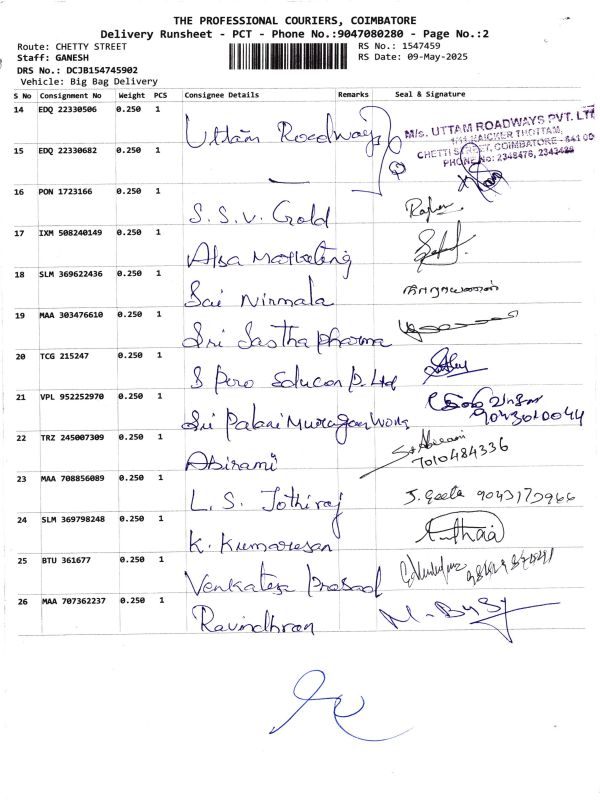 THE PROFESSIONAL COURIERS, COIMBATORE
Delivery Runsheet - PCT - Phone No.:9047080280 - Page No.:2
Route: CHETTY STREET RS No.: 1547459
Staff: GANESH RS Date: 09-May-2025
DRS No.: DCJB154745902
Vehicle: Big Bag Delivery
S No Consignment No Weight PCS Consignee Details Remarks Seal & Signature
14 EDQ 22330506 0.250 1 Uttam Roadways M/s. UTTAM ROADWAYS PVT. LTD
NAICKER THOTTAM,
15 EDQ 22330682 0.250 1 — CHETTI STREET, COIMBATORE - 641 00
PHONE No: 2348476, 2342486
16 PON 1723166 0.250 1 S.S.V. Gold
17 IXM 508240149 0.250 1 Alsa Marketing
18 SLM 369622436 0.250 1 Sai Nirmala
19 MAA 303476610 0.250 1 Sri Sastha pharma
20 TCG 215247 0.250 1 S Pero Educon P. Ltd
21 VPL 952252970 0.250 1 Sri Palani Murugan Wong 9043010044
22 TRZ 245007309 0.250 1 Abirami 7010484336
23 MAA 708856089 0.250 1 L. S. Jothiraj J. Geela 9043173966
24 SLM 369798248 0.250 1 K. Kumaresan
25 BTU 361677 0.250 1 Venkatesa Prasad
26 MAA 707362237 0.250 1 Ravindhran